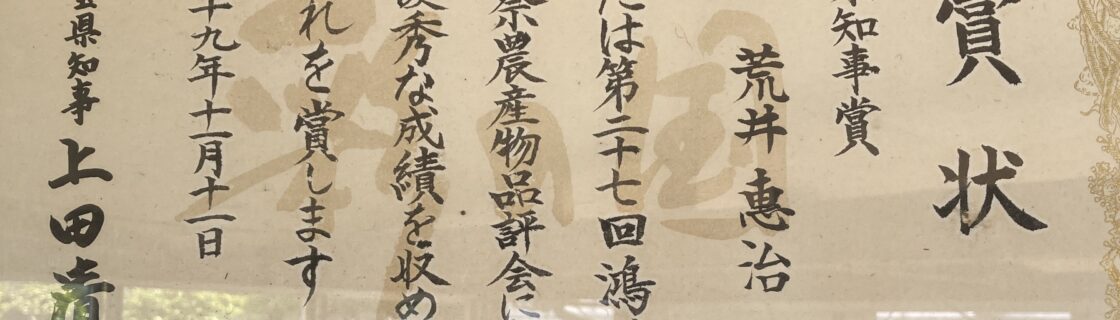 賞状
知事賞
荒井惠治
たは第二十七回鴻
祭農産物品評会に
秀な成績を収め
れを賞します
十九年十一月十一日
県知事 上田清